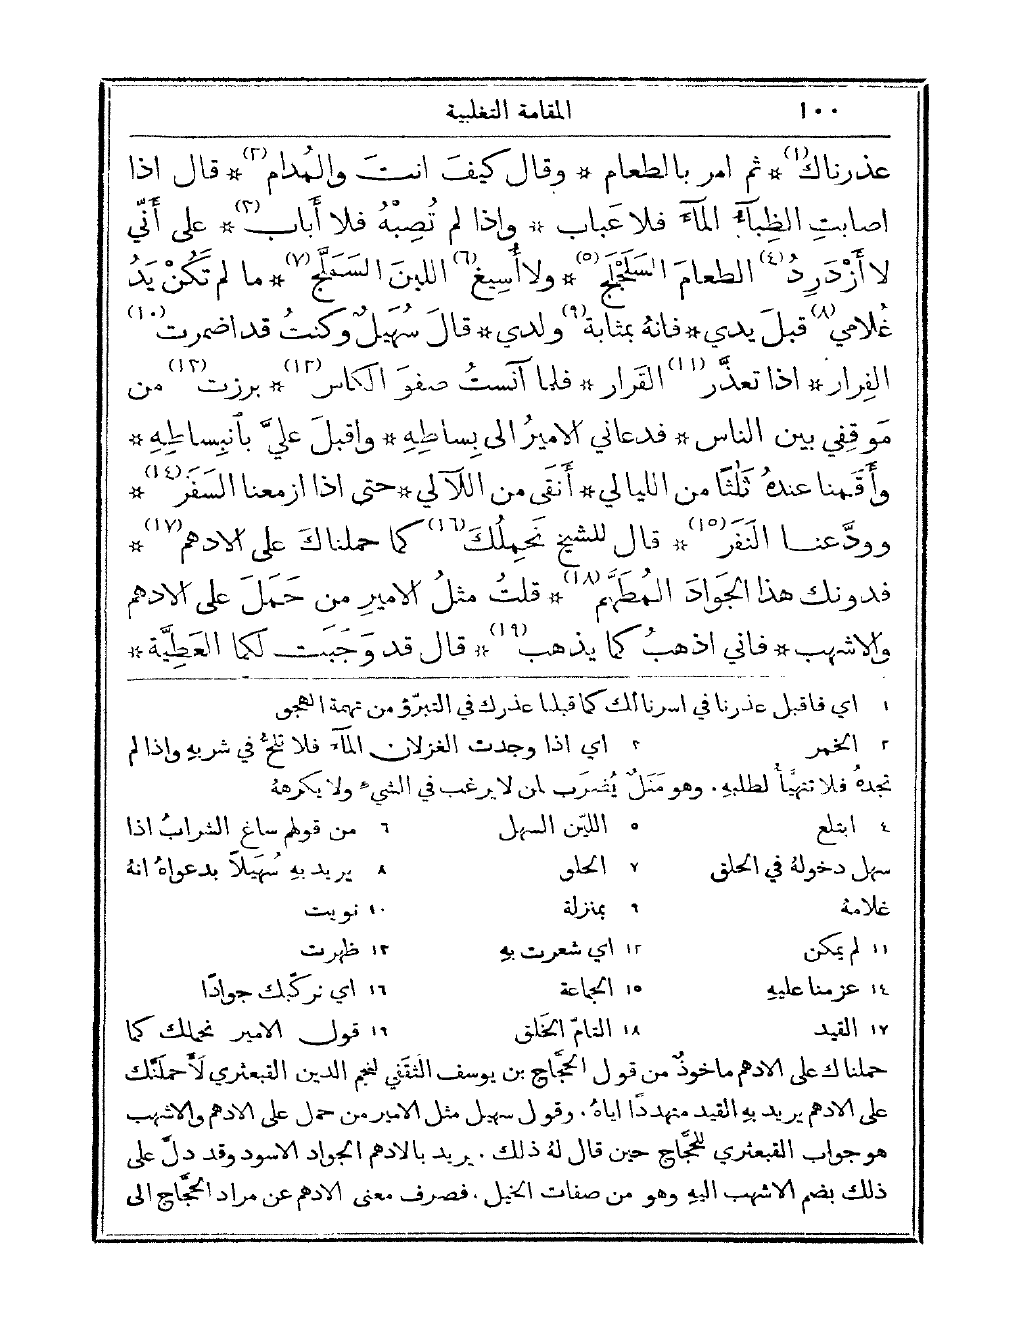 ١٠٠ المقامة التغلبية
عذرناك(١)* ثم امر بالطعام * وقال كيفَ انتَ والمُدام(٢)* قال اذا
اصابتِ الظِبآءُ المآءَ فلا عَباب * واذا لم تُصِبْهُ فلا أَباب(٣)* على أَنّي
لا أَزْدَرِدُ(٤) الطعامَ السَلَجْلَج(٥)* ولا أُسِيغ(٦) اللينَ السَمَلَّج(٧)* ما لم تَكُنْ يَدُ
غُلامي(٨) قبلَ يدي* فانهُ بمثابة(٩) ولدي* قالَ سُهَيلٌ وكنتُ قد اضمرت(١٠)
الفِرار* اذا تعذَّر(١١) القَرار* فلما آنستُ صفوَ الكاس(١٢)* برزت(١٣) من
مَوقِفي بين الناس* فدعاني الاميرُ الى بِساطِهِ* واقبلَ عليَّ بأنبِساطِهِ*
وأَقَمنا عندهُ ثَلٰثًا من الليالي* أَنقَى من اللآلي* حتى اذا ازمعنا السَفَر(١٤)*
وودَّعنا النَفَر(١٥)* قال للشيخ نَحمِلُكَ(١٦) كما حملناكَ على الادهم(١٧)*
فدونك هذا الجَوادَ المُطَهَّم(١٨)* قلتُ مثلُ الاميرِ من حَمَلَ على الادهم
والاشهب* فاني اذهبُ كما يذهب(١٩)* قال قد وَجَبَت لكما العَطِيَّة*
١ اي فاقبل عذرنا في اسرنا لك كما قبلنا عذرك في التبرّؤ من تهمة الهجو
٢ الخمر ٣ اي اذا وجدت الغزلان المآءَ فلا تلحُّ في شربهِ واذا لم
تجدهُ فلا تتهيَّأ لطلبهِ. وهو مَثَلٌ يُضرَب لمن لا يرغب في الشيء ولا يكرههُ
٤ ابتلع ٥ الليّن السهل ٦ من قولهم ساغ الشرابُ اذا
سهل دخولهُ في الحلق ٧ الحلو ٨ يريد بهِ سُهَيلًا بدعواهُ انهُ
غلامهُ ٩ بمنزلة ١٠ نويت
١١ لم يمكن ١٢ اي شعرت بهِ ١٣ ظهرت
١٤ عزمنا عليهِ ١٥ الجماعة ١٦ اي نركّبك جوادًا
١٧ القيد ١٨ التامّ الخَلق ١٩ قول الامير نحملك كما
حملناك على الادهم ماخوذٌ من قول الحجَّاج بن يوسف الثقفي لنجم الدين القبعثري لَأَحملنَّك
على الادهم يريد بهِ القيد متهددًا اياهُ. وقول سهيل مثل الامير من حمل على الادهم والاشهب
هو جواب القبعثري للحجَّاج حين قال لهُ ذلك. يريد بالادهم الجواد الاسود وقد دلَّ على
ذلك بضم الاشهب اليهِ وهو من صفات الخيل. فصرف معنى الادهم عن مراد الحجَّاج الى